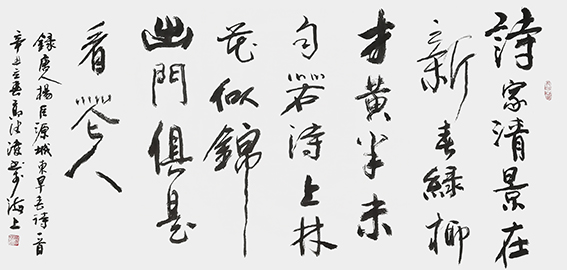 詩家清景在
新春緑柳
才黄半未
匀若待上林
花似錦
出門俱是
看花人
録唐人楊巨源城東早春詩一首
辛丑 春 海上